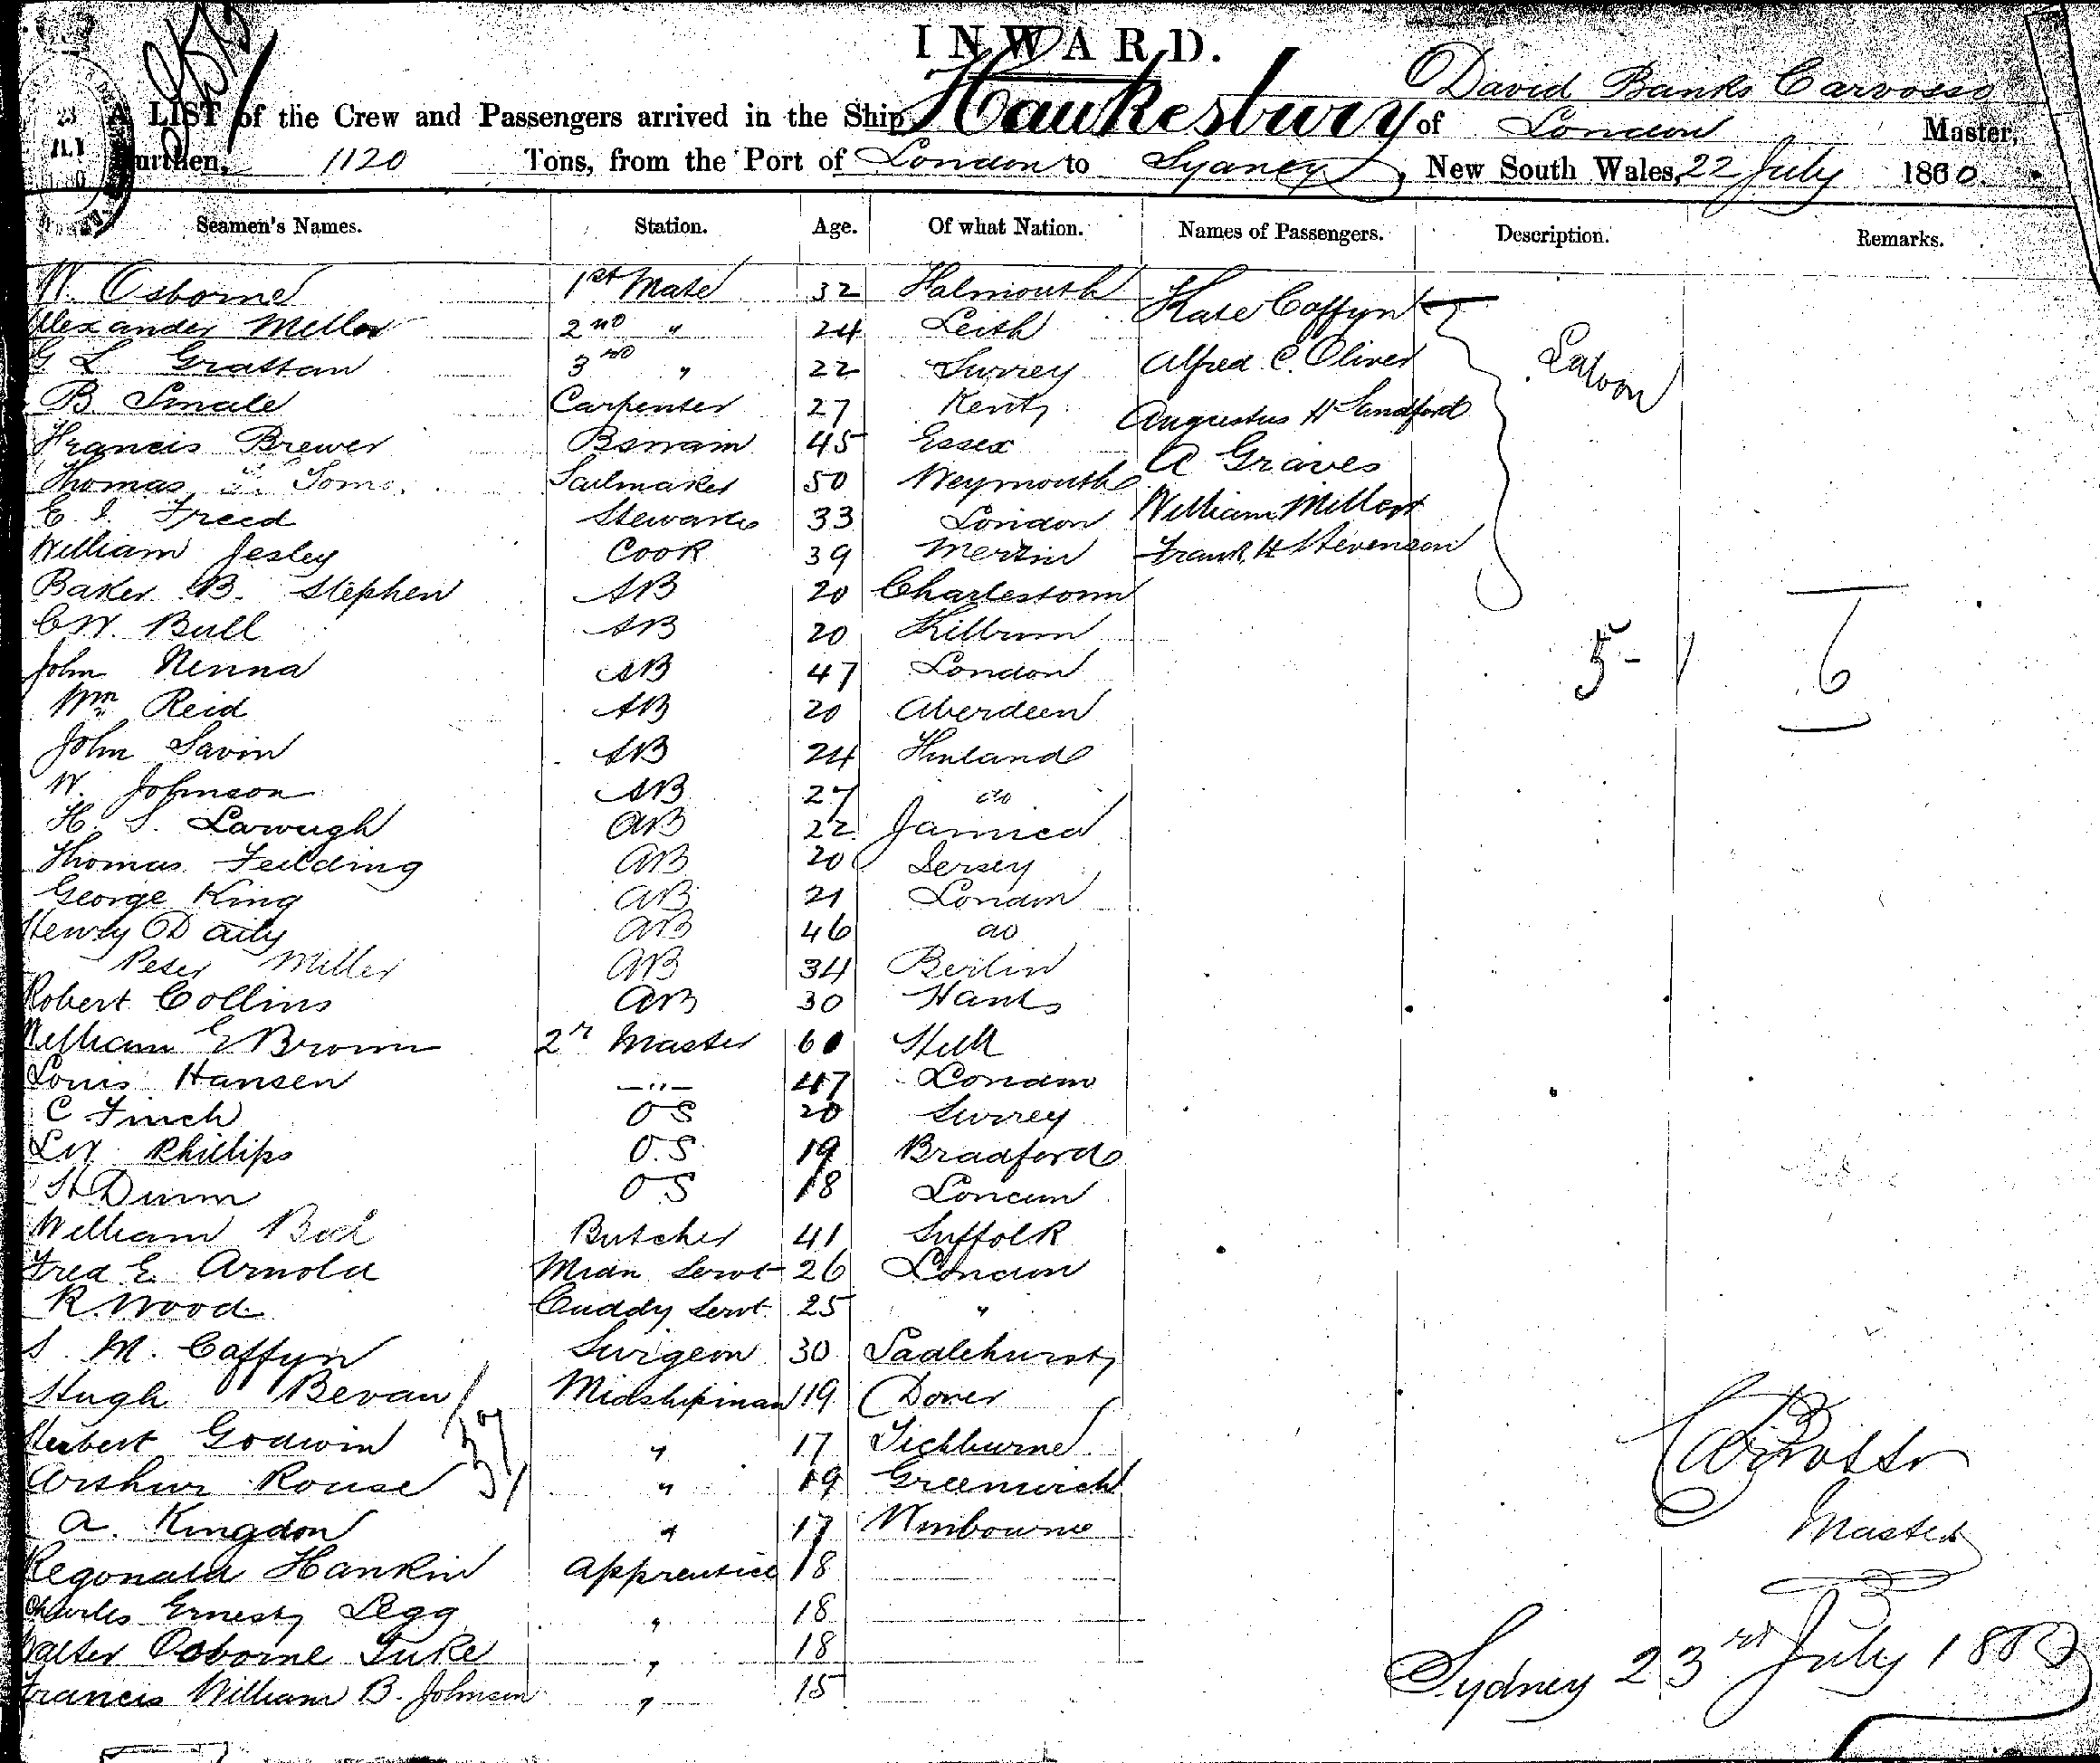 INWARD.
David Banks Carvosso
A LIST of the Crew and Passengers arrived in the Ship Hawkesbury of London Master,
Burthen, 1120 Tons, from the Port of London to Sydney, New South Wales, 22 July 1880.
Seamen's Names. Station. Age. Of what Nation. Names of Passengers. Description. Remarks.
W. Osborne 1st Mate 32 Falmouth Kate Caffyn
Alexander Mellor 2nd " 24 Leith
Saloon
G L Grattan 3rd " 22 Surrey Alfred C. Oliver
B. Smale Carpenter 27 Kent Augustus H Sandford
Francis Brewer Bswain 45 Essex A Graves
Thomas Sailmaker 50 Weymouth
E. J. Freed Steward 33 London William Millett
William Jesley Cook 39 Frank H Stevenson
Baker B. Stephen AB 20 Charlestown
C W. Bull AB 20 Kilburn
5 - 1 6
John Nenna AB 47 London
Wm Reid AB 20 Aberdeen
John Savin AB 24 Finland
W. Johnson AB 27 do
H. S. AB 22 Jamica
Thomas Feilding AB 20 Jersey
George King AB 21 London
Henry Daily AB 46 do
Peter Miller AB 34 Berlin
Robert Collins AB 30 Hants
William E Brown 2r Master 60 Hull
Louis Hansen —"— 47 London
C Finch OS 20 Surrey
L W. Phillips O.S. 19 Bradford
H Dunn OS 18 London
William Butcher 41 Suffolk
Fred E. Arnold Midn Servt 26 London
R. Wood Cuddy Servt. 25 "
S. M. Caffyn Surgeon 30 Salehurst
Hugh Bevan Midshipman 19 Dover
37
Herbert Godwin " 17 Tichburne
Arthur Rouse " 19 Greenwich
A. Kingdon " 17 Wimbourne
Regonald Hankin Apprentice 18
Charles Ernest Legg " 18
Walter Osborne Tuke " 18
Francis William B. Johnson " 15
D B Carvosso
Master
Sydney 23rd July 1880